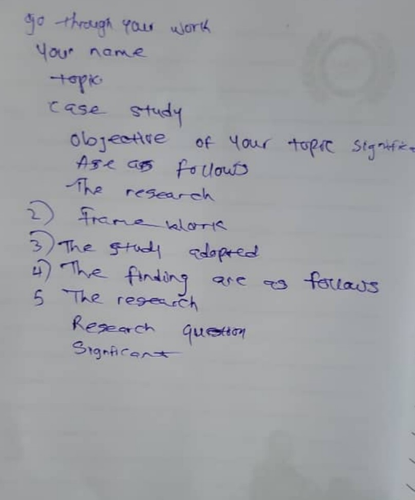 go through your work
Your name
topic
case study
objective of your topic signific
Are as follows
The research
2) frame work
3) The study adopted
4) The finding are as follows
5 The research
Research question
Significant